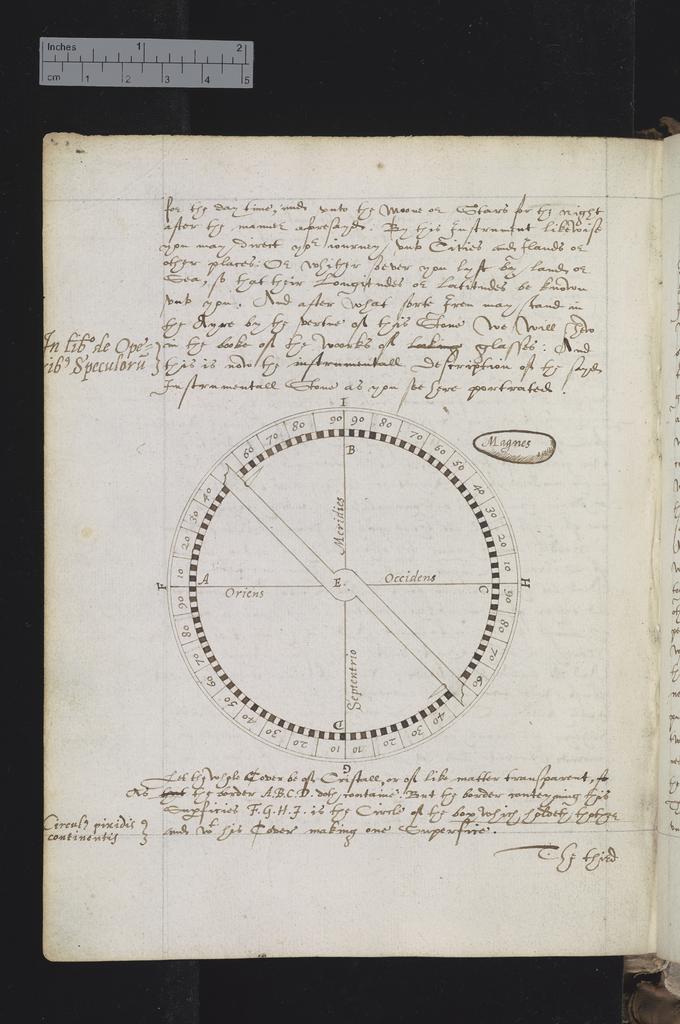 Inches 1 2
cm 1 2 3 4 5
for the day time, and unto the Moone or Starrs for the night
after the maner aforesayd. By this Instrument likewise
you may direct your journey unto Cities and Ilands or
other places: Or whither soever you lyst by land or
Sea, so that their Longitudes or Latitudes be knowen
unto you. And after what sorte Iron may stand in
the Ayre by the vertue of this Stone we will
in the booke of the works of glasses: And
this is now the instrumentall description of the sayd
Instrumentall Stone as you see here portrated.
In lib° de Ope-
rib9 Speculorū
I
90 90
80 80
70 70
60 60
50
40 40
30 30
20 20
10 10
Magnes
B
Meridies
F A Oriens E Occidens C H
90 90
80 80
70 70
60 60
40
30 30
20 20
10 10
Septentrio
D
G
Let the whole Cover be of Cristall, or of like matter transparent,
the border A.B.C.D. doth containe. But the border conteyning this
Superficies F.G.H.I. is the Circle of the box which
and wt his Cover making one Superficie.
Circul9 pixidis
continentis
The third